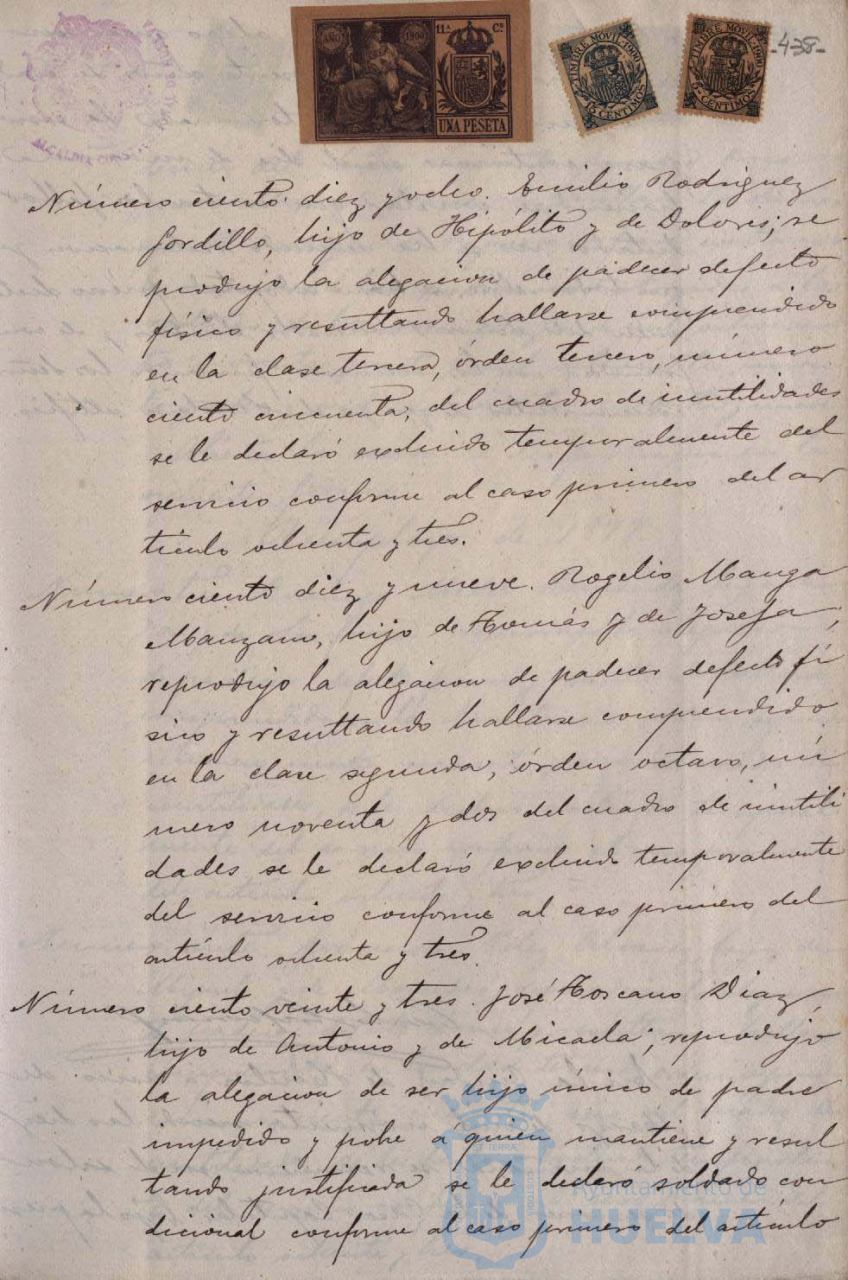 -438-
AÑO 1900
11ª Cº
UNA PESETA
TIMBRE MOVIL 1900
15 CENTIMOS
TIMBRE MOVIL 1900
5 CENTIMOS
Número ciento diez y ocho. Emilio Rodriguez
Gordillo, hijo de Hipólito y de Dolores; se
produjo la alegacion de padecer defecto
físico y resultando hallarse comprendido
en la clase tercera, órden tercero, número
ciento cincuenta, del cuadro de inutilidades
se le declaró excluido temporalmente del
servicio conforme al caso primero del ar
tículo ochenta y tres.
Número ciento diez y nueve. Rogelio Manga
Manzano, hijo de Tomás y de Josefa,
reprodujo la alegacion de padecer defecto fí
sico y resultando hallarse comprendido
en la clase segunda, órden octavo, nú
mero noventa y dos del cuadro de inutili
dades se le declaró excluido temporalmente
del servicio conforme al caso primero del
artículo ochenta y tres.
Número ciento veinte y tres. José Toscano Diaz,
hijo de Antonio y de Micaela; reprodujo
la alegacion de ser hijo único de padre
impedido y pobre á quien mantiene y resul
tando justificada se le declaró soldado con
dicional conforme al caso primero del artículo
Ayuntamiento de
HUELVA